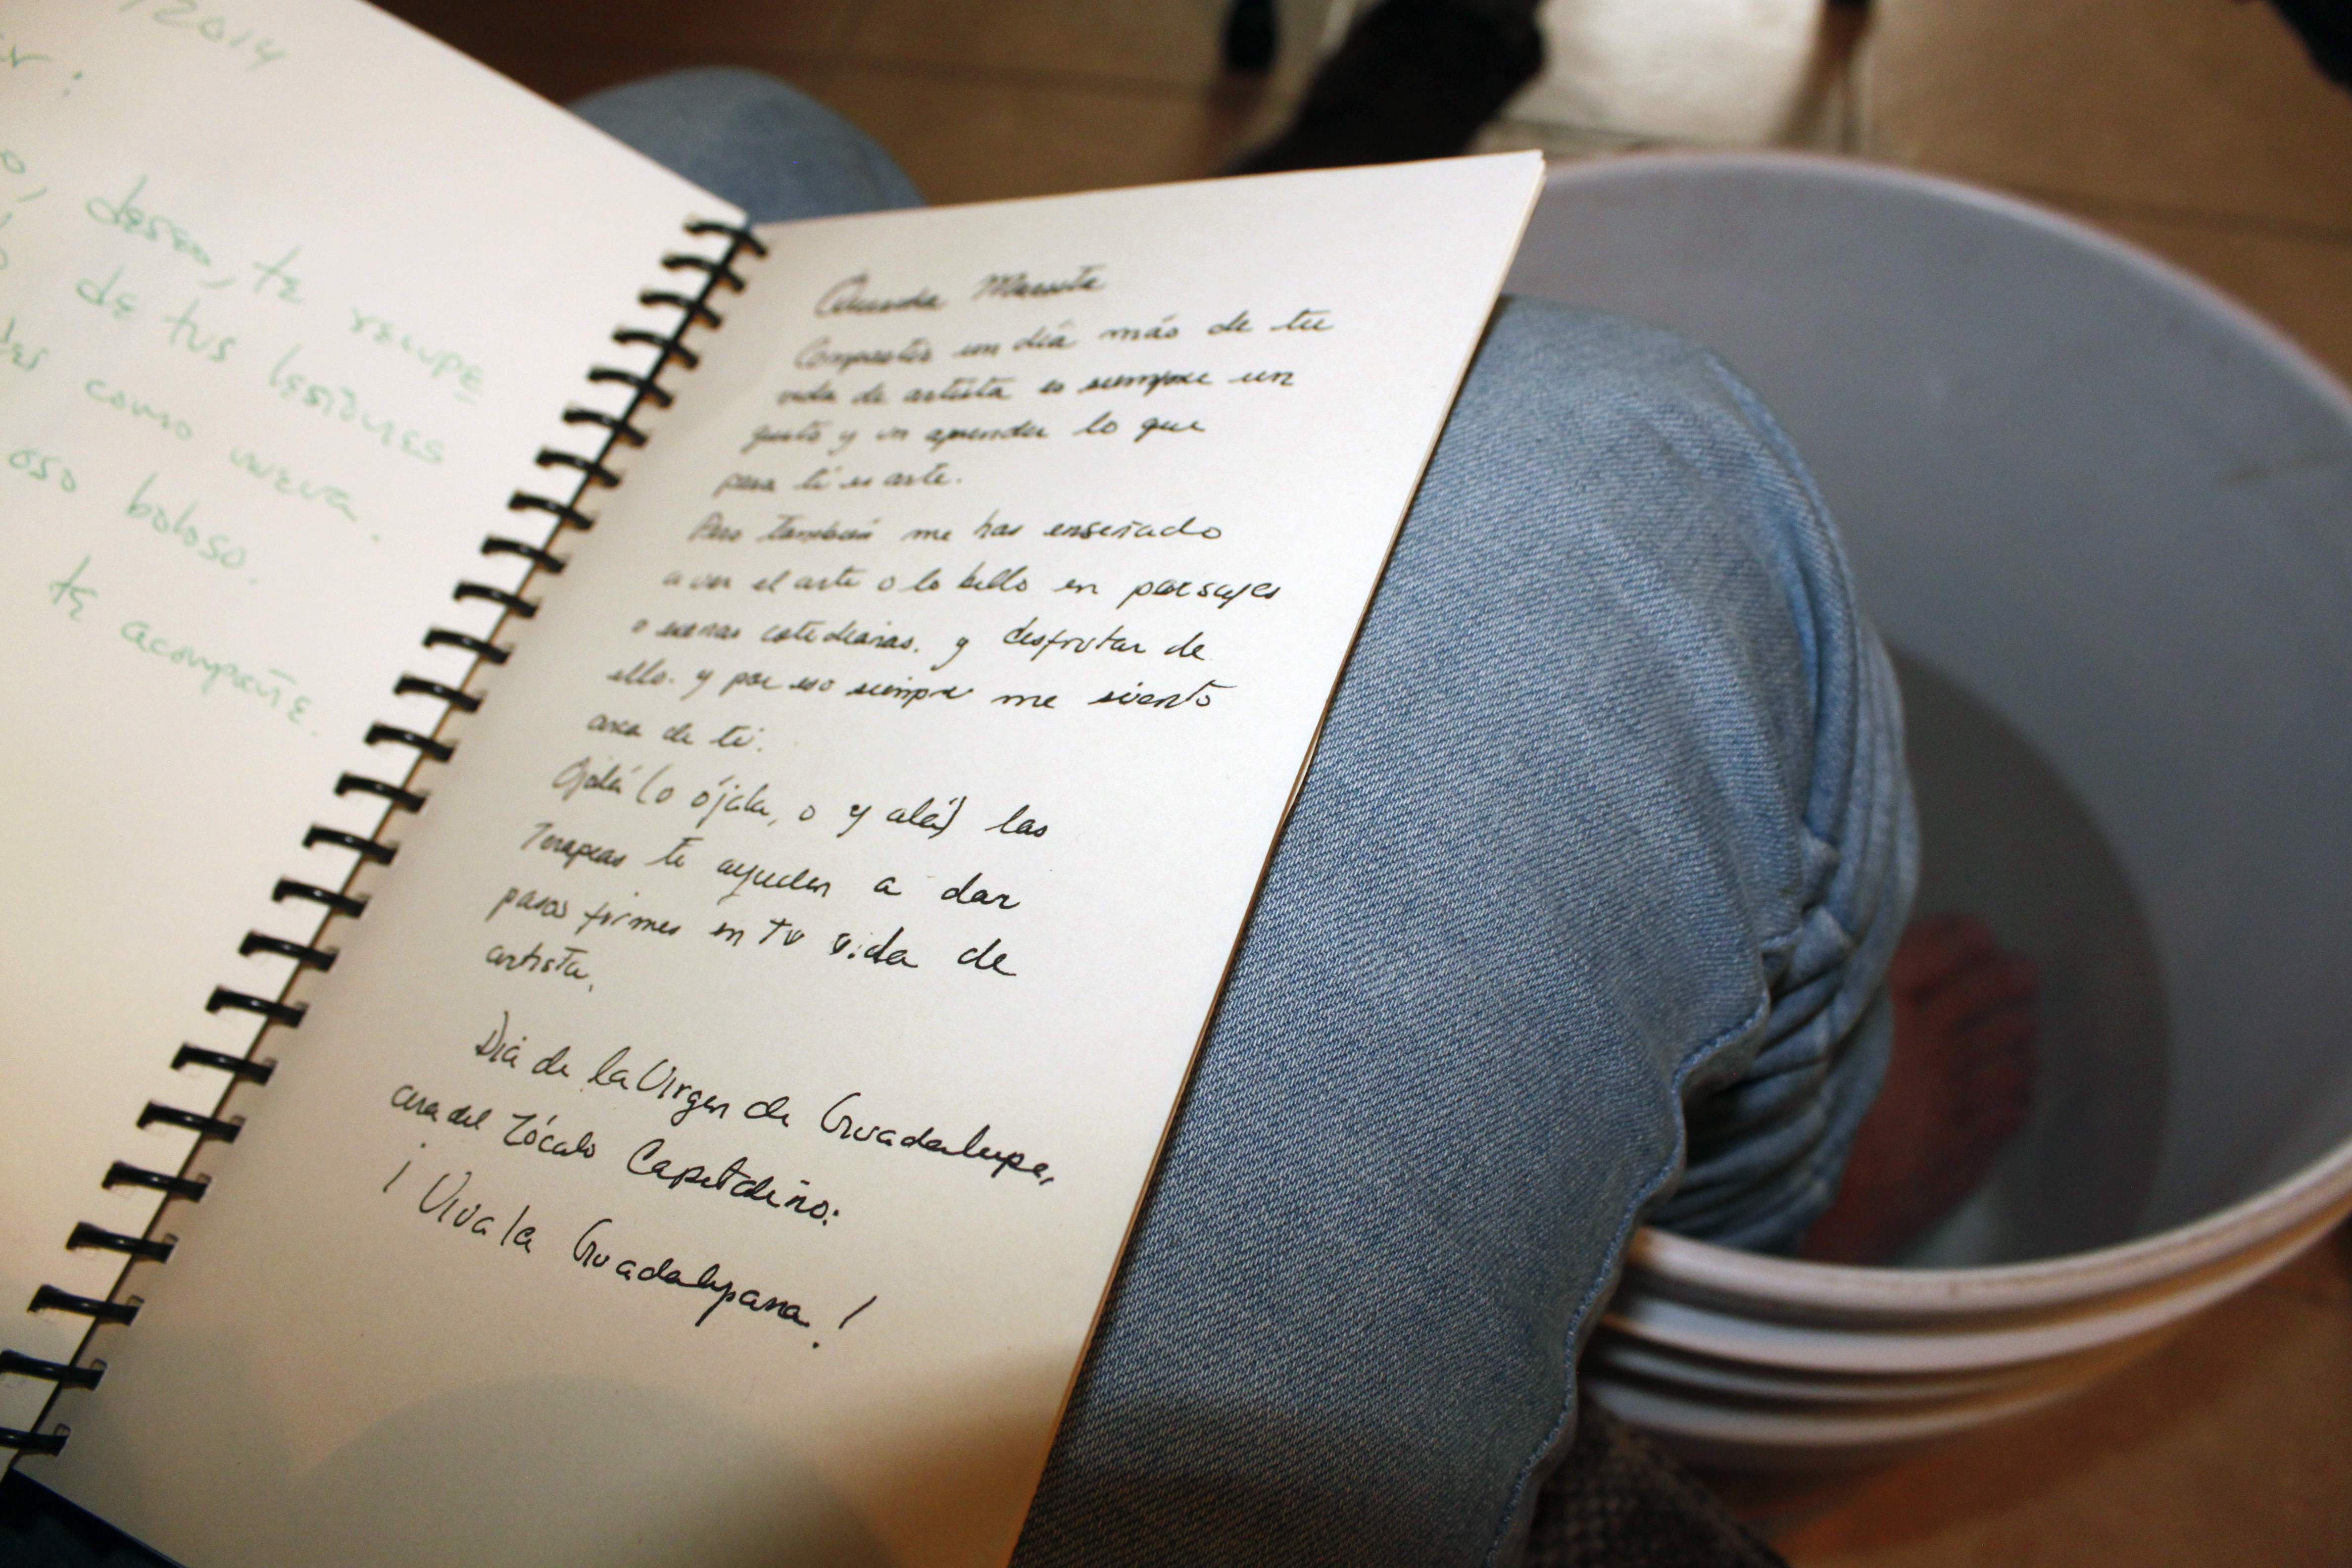 2014
deseo, te recupe
de tus lesiones
como nueva.
oso boloso.
te acompañe.
Compartir un día más de tu
vida de artista es siempre un
gusto y un aprender lo que
para tí es arte.
Pero también me has enseñado
a ver el arte o lo bello en paisajes
o escenas cotidianas. y disfrutar de
ello. y por eso siempre me siento
cerca de ti.
Ojalá (o ójala, o y alá) las
Terapias te ayuden a dar
pasos firmes en tu vida de
artista.
Día de la Virgen de Guadalupe,
cerca del Zócalo Capitalino.
¡Viva la Guadalupana!